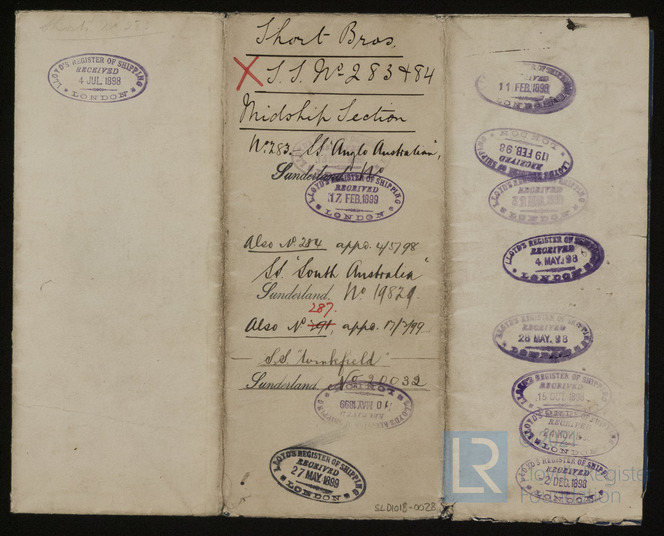 LLOYD'S REGISTER OF SHIPPING
RECEIVED
4 JUL. 1898
LONDON
Short Bros.
X S.S. No 283 & 84
Midship Section
No 283 - SS "Anglo Australian",
Sunderland No
LLOYD'S REGISTER OF SHIPPING
RECEIVED
17 FEB. 1899
LONDON
Also No 284 appd. 4/5/98
SS. "South Australia"
Sunderland. No 19829.
287
Also No 91, appd. 17/2/99
S.S.
Sunderland No 20032
LLOYD'S REGISTER OF SHIPPING
10 MAY 1899
LONDON
LLOYD'S REGISTER OF SHIPPING
RECEIVED
27 MAY. 1899
LONDON
SLD1018-0028
11 FEB. 1898
LONDON
LONDON
19 FEB. 98
RECEIVED
LLOYD'S REGISTER OF SHIPPING
LLOYD'S REGISTER OF SHIPPING
RECEIVED
LONDON
LLOYD'S REGISTER OF SHIPPING
RECEIVED
4 MAY. 98
LONDON
LLOYD'S REGISTER OF SHIPPING
RECEIVED
28 MAY. 98
LONDON
LLOYD'S REGISTER OF SHIPPING
RECEIVED
LONDON
LLOYD'S REGISTER OF SHIPPING
RECEIVED
LLOYD'S REGISTER OF SHIPPING
RECEIVED
2 DEC. 1898
LONDON
LR
Lloyd's Register
Foundation